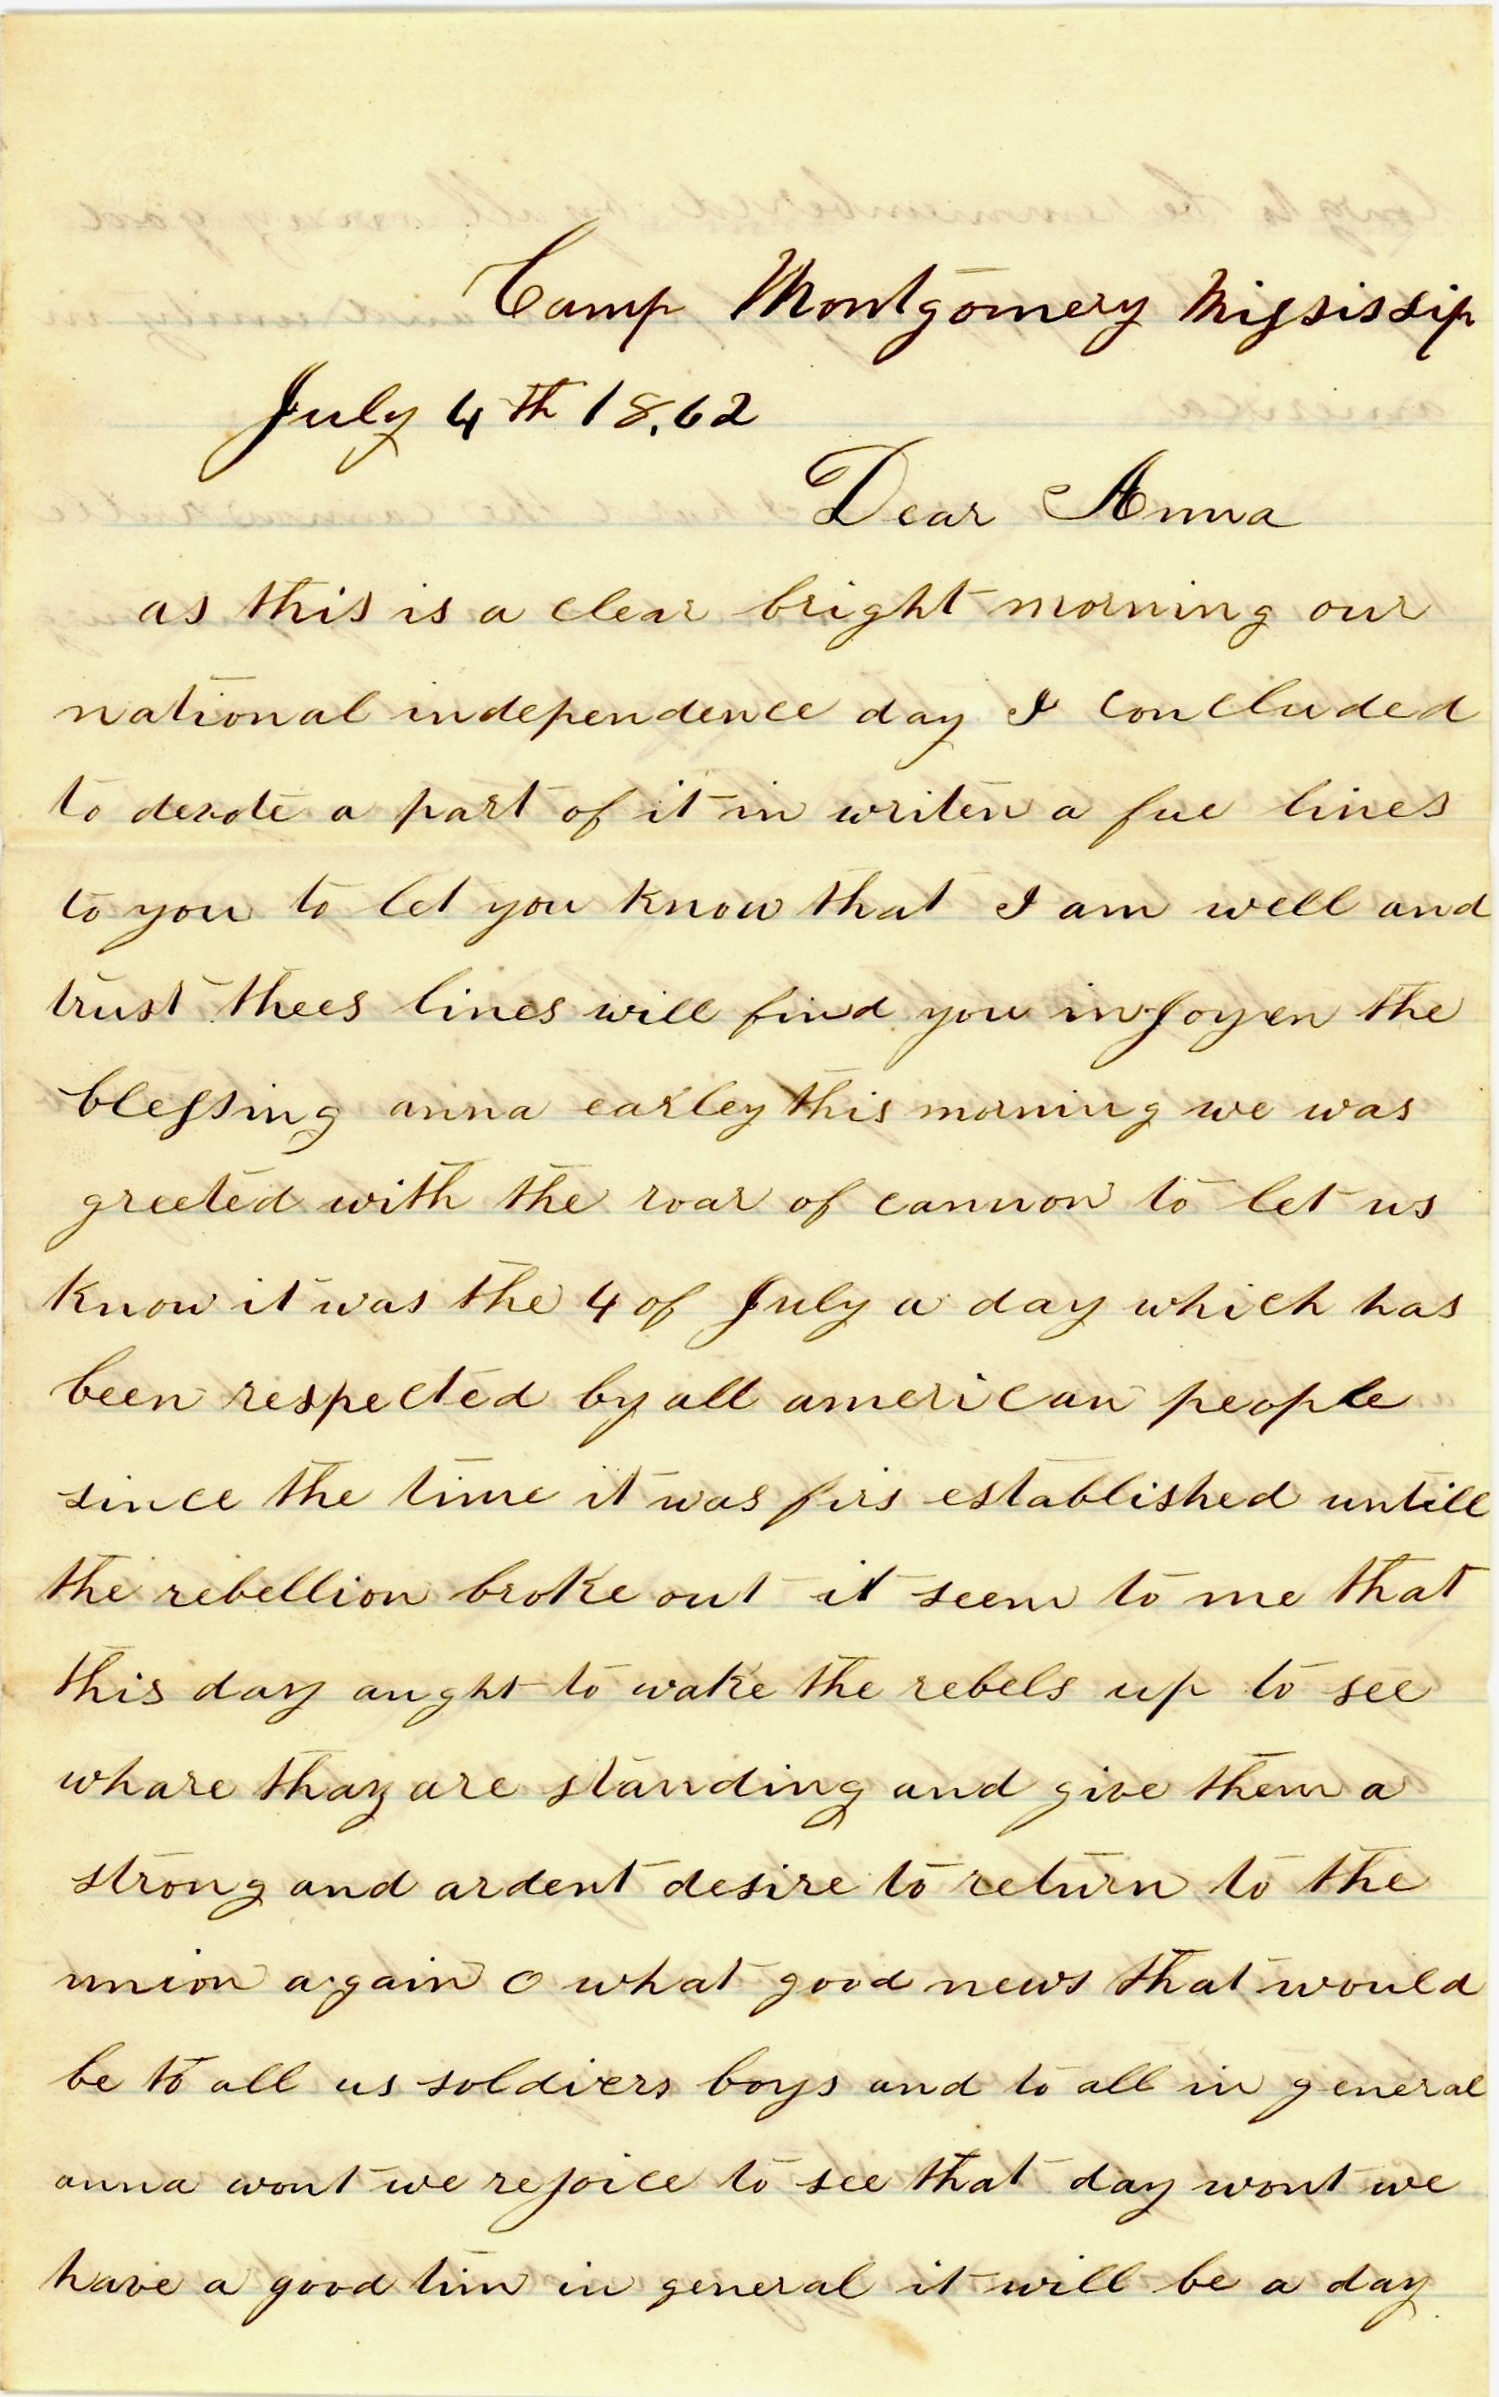 Camp Montgomery Mississip
July 4th 18,62
Dear Anna
as this is a clear bright morning our
national independence day I concluded
to devote a part of it in writen a fue lines
to you to let you know that I am well and
trust thees lines will find you in Joyen the
blessing anna earley this morning we was
greeted with the roar of cannon to let us
know it was the 4 of July a day which has
been respected by all american people
since the time it was firs established untill
the rebellion broke out it seem to me that
this day aught to wake the rebels up to see
whare thay are standing and give them a
strong and ardent desire to return to the
union again O what good news that would
be to all us soldiers boys and to all in general
anna wont we rejoice to see that day wont we
have a good tim in general it will be a day